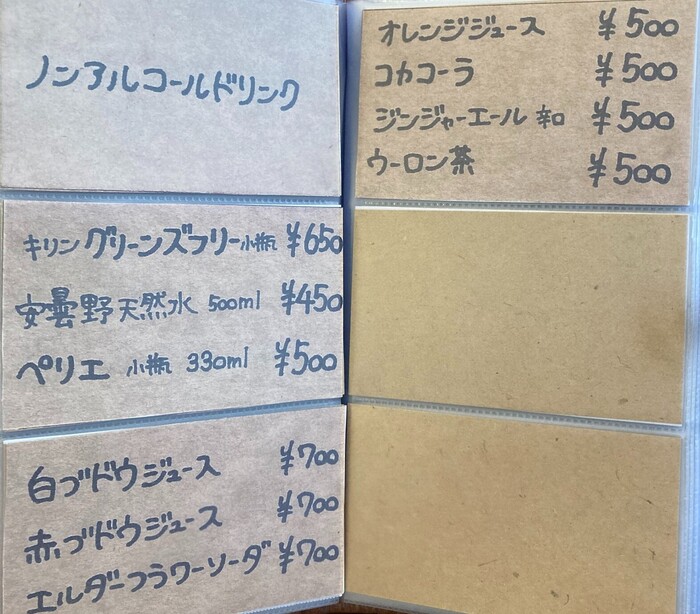 ノンアルコールドリンク
キリングリーンズフリー小瓶 ¥650
安曇野天然水 500ml ¥450
ペリエ 小瓶 330ml ¥500
白ブドウジュース ¥700
赤ブドウジュース ¥700
エルダーフラワーソーダ ¥700
オレンジジュース ¥500
コカコーラ ¥500
ジンジャーエール 辛口 ¥500
ウーロン茶 ¥500